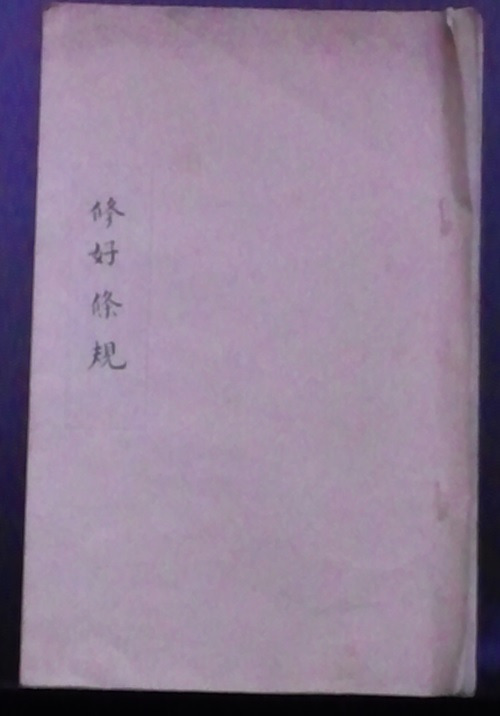 修好條規